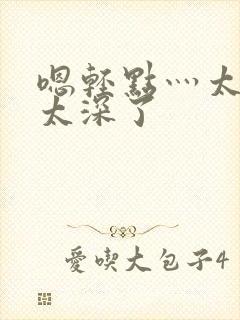 嗯輕點灬太
太深了
愛喫大包子4